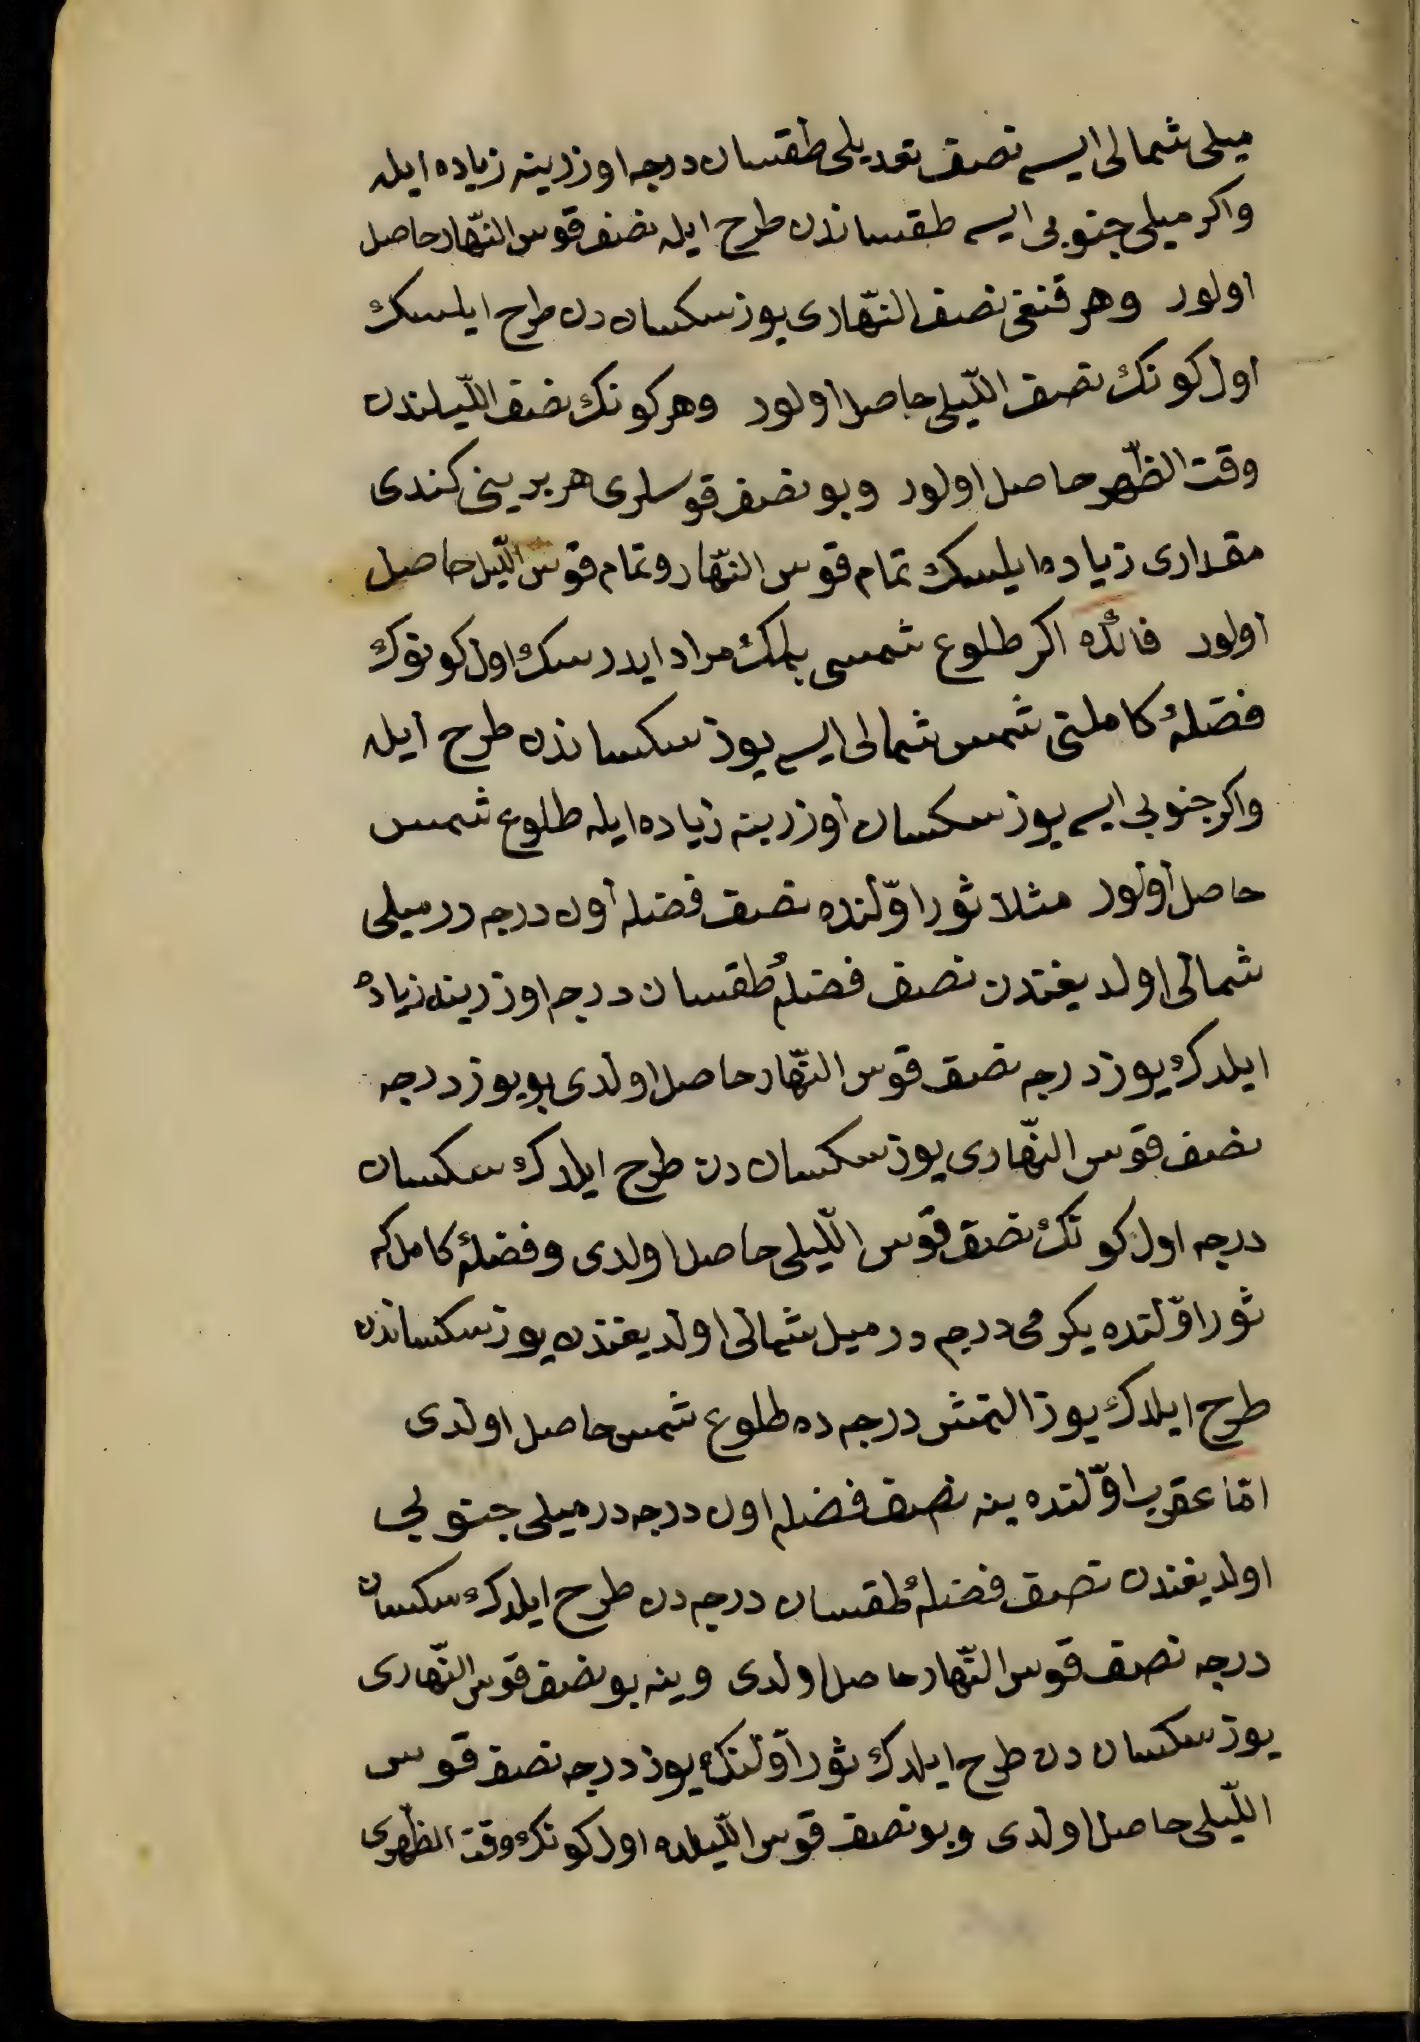 ميلى شمالى ايسه نصف تعديلى طقسان درجه اوزرينه زياده ايله
واكر ميلى جنوبى ايسه طقساندن طرح ايله نصف قوس النّهار حاصل
اولور وهر قنغى نصف النّهارى يوز سكسان دن طرح ايلسك
اول كونك نصف اللّيلى حاصل اولور وهر كونك نصف اللّيلندن
وقت الظّهر حاصل اولور وبو نصف قوسلرى هر بريني كندى
مقدارى زياده ايلسك تمام قوس النّهار وتمام قوس اللّيل حاصل
اولور فائده اكر طلوع شمسى بلمك مراد ايدرسك اول كونوك
فضلهٔ كاملنى شمس شمالى ايسه يوز سكساندن طرح ايله
واكر جنوبى ايسه يوز سكسان اوزرينه زياده ايله طلوع شمس
حاصل اولور مثلا ثور اوّلنده نصف فضله اون درجه در ميلى
شمالى اولديغندن نصف فضلهٔ طقسان درجه اوزرينه زياده
ايلدك يوز درجه نصف قوس النّهار حاصل اولدى بو يوز درجه
نصف قوس النّهارى يوز سكسان دن طرح ايلدك سكسان
درجه اول كونك نصف قوس اللّيلى حاصل اولدى وفضلهٔ كامل كه
ثور اوّلنده يكرمى درجه در ميل شمالى اولديغندن يوز سكساندن
طرح ايلدك يوز التمش درجه ده طلوع شمس حاصل اولدى
امّا عقرب اوّلنده ينه نصف فضله اون درجه در ميلى جنوبى
اولديغندن نصف فضلهٔ طقسان درجه دن طرح ايلدك سكسان
درجه نصف قوس النّهار حاصل اولدى وينه بو نصف قوس النّهارى
يوز سكسان دن طرح ايلدك ثور اوّلنك يوز درجه نصف قوس
اللّيلى حاصل اولدى وبو نصف قوس اللّيلده اول كونك وقت الظّهرى